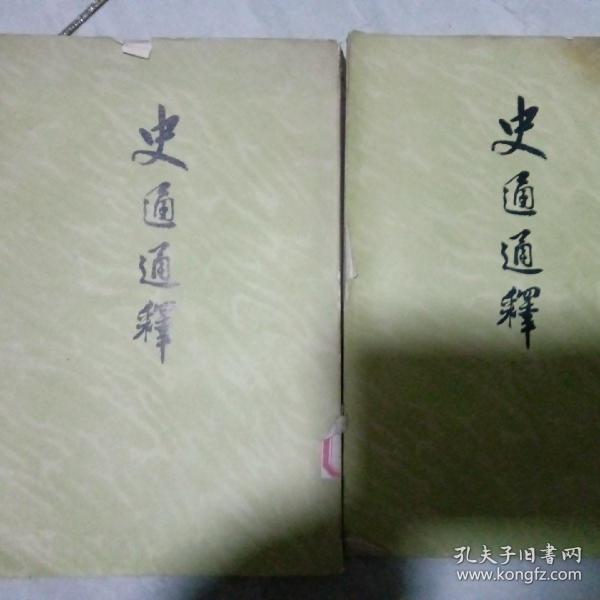 史通通釋
史通通釋
孔夫子旧书网
www.kongfz.com